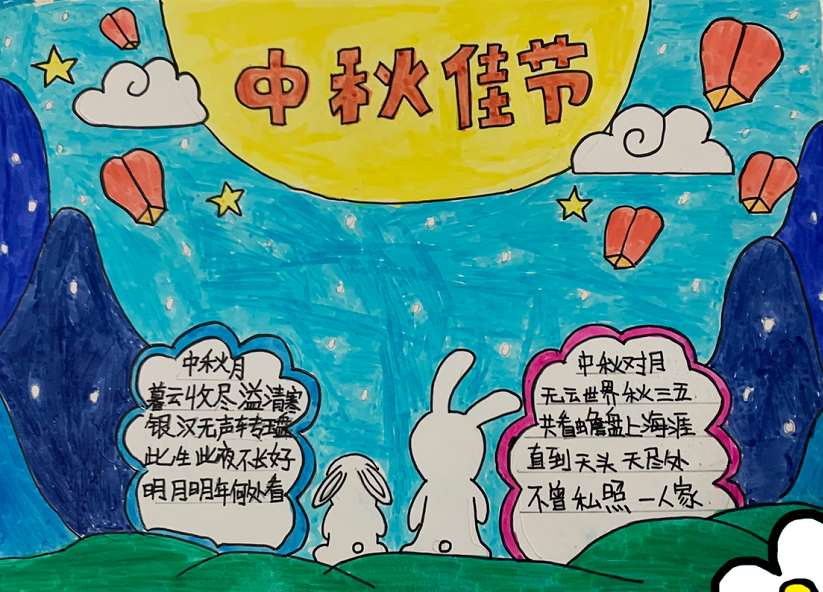 中秋佳节
中秋月
暮云收尽溢清寒
银汉无声转玉盘
此生此夜不长好
明月明年何处看
中秋对月
无云世界秋三五
共看蟾盘上海涯
直到天头天尽处
不曾私照一人家